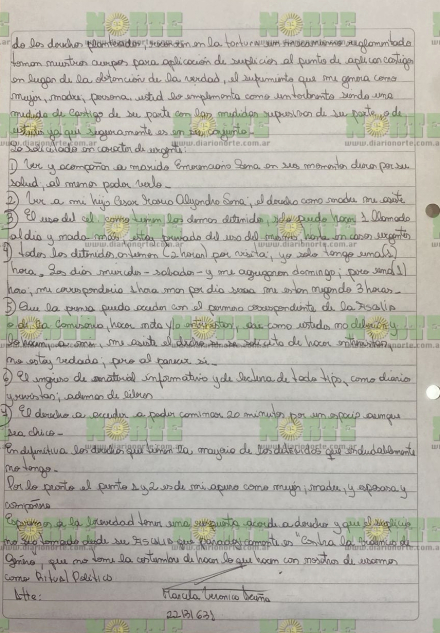 do los derechos planteados, recorren en la tortura un mecanismo reglamentado
toman nuestros cuerpos para aplicación de suplicios al punto de aplicar castigos
en lugar de la obtención de la verdad, el sufrimiento que me genera como
mujer, madre, persona usted lo implementa como un tormento siendo una
medida de castigo de su parte con las medidas de su parte, o de
usted ya que seguramente es en conjunto.
Lo solicitado en carácter de urgente:
1) Ver y acompañar a marido Emerenciano Sena, en sus momentos duros por su
salud, al menos poder verlo.
2) Ver a mi hijo Cesar Mario Alejandro Sena, el derecho como madre me asiste
3) El uso del cel. como tienen los demas detenidos, solo puedo hacer 1 llamado
al día y nada mas estoy privada del uso del mismo, en casos urgentes
4) todos los detenidos obtienen (2 horas) por visita, yo solo tengo una (1)
hora, los días miercoles - sabado - y me agregaron domingo; pero una (1)
hora; me correspondería hora mas por día o sea me estan negando 3 horas.
5) Que la prensa pueda acceder con el permiso correspondiente de la Fiscalia
o de la Comisaria, hacer nota y/o entrevistas, asi como usted no
a mi, me asiste el de hacer
no estoy vedada, pero al parecer si.
6) El ingreso de material informativo y de lectura de todo tipo, como diario
y revistas; ademas de libros
7) El derecho a acceder a poder caminar 20 minutos por un espacio aunque
sea chico.
En definitiva los derechos que tienen la mayoria de los detenidos que indudablemente
no tengo.
Por lo pronto el punto 1 y 2 es de mi apuro como mujer, madre, y esposa y
compañera
Esperamos a la brevedad tener una respuesta acorde a derecho y que el suplicio
no sea tomado desde su Fiscalia que paradojicamente es "Contra la Violencia de
Género, que no tome la costumbre de hacer lo que hacen con nosotros de usarnos
como Ritual Político
Atte: Marcela Veronica Acuña
22.131.631
NORTE
www.diarionorte.com.ar